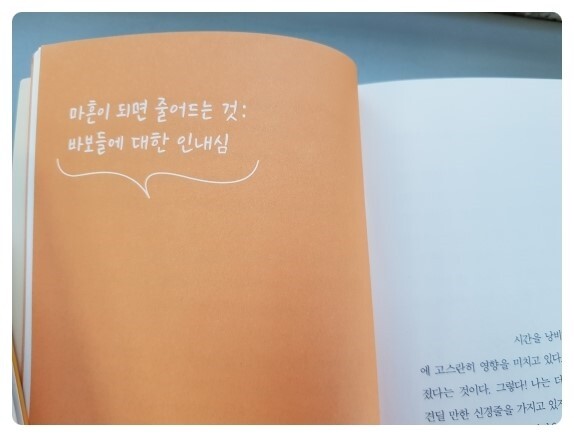 마흔이 되면 줄어드는 것:
바보들에 대한 인내심
시간을 낭비
에 고스란히 영향을 미치고 있다.
졌다는 것이다. 그렇다! 나는 다
견딜 만한 신경줄을 가지고 있지